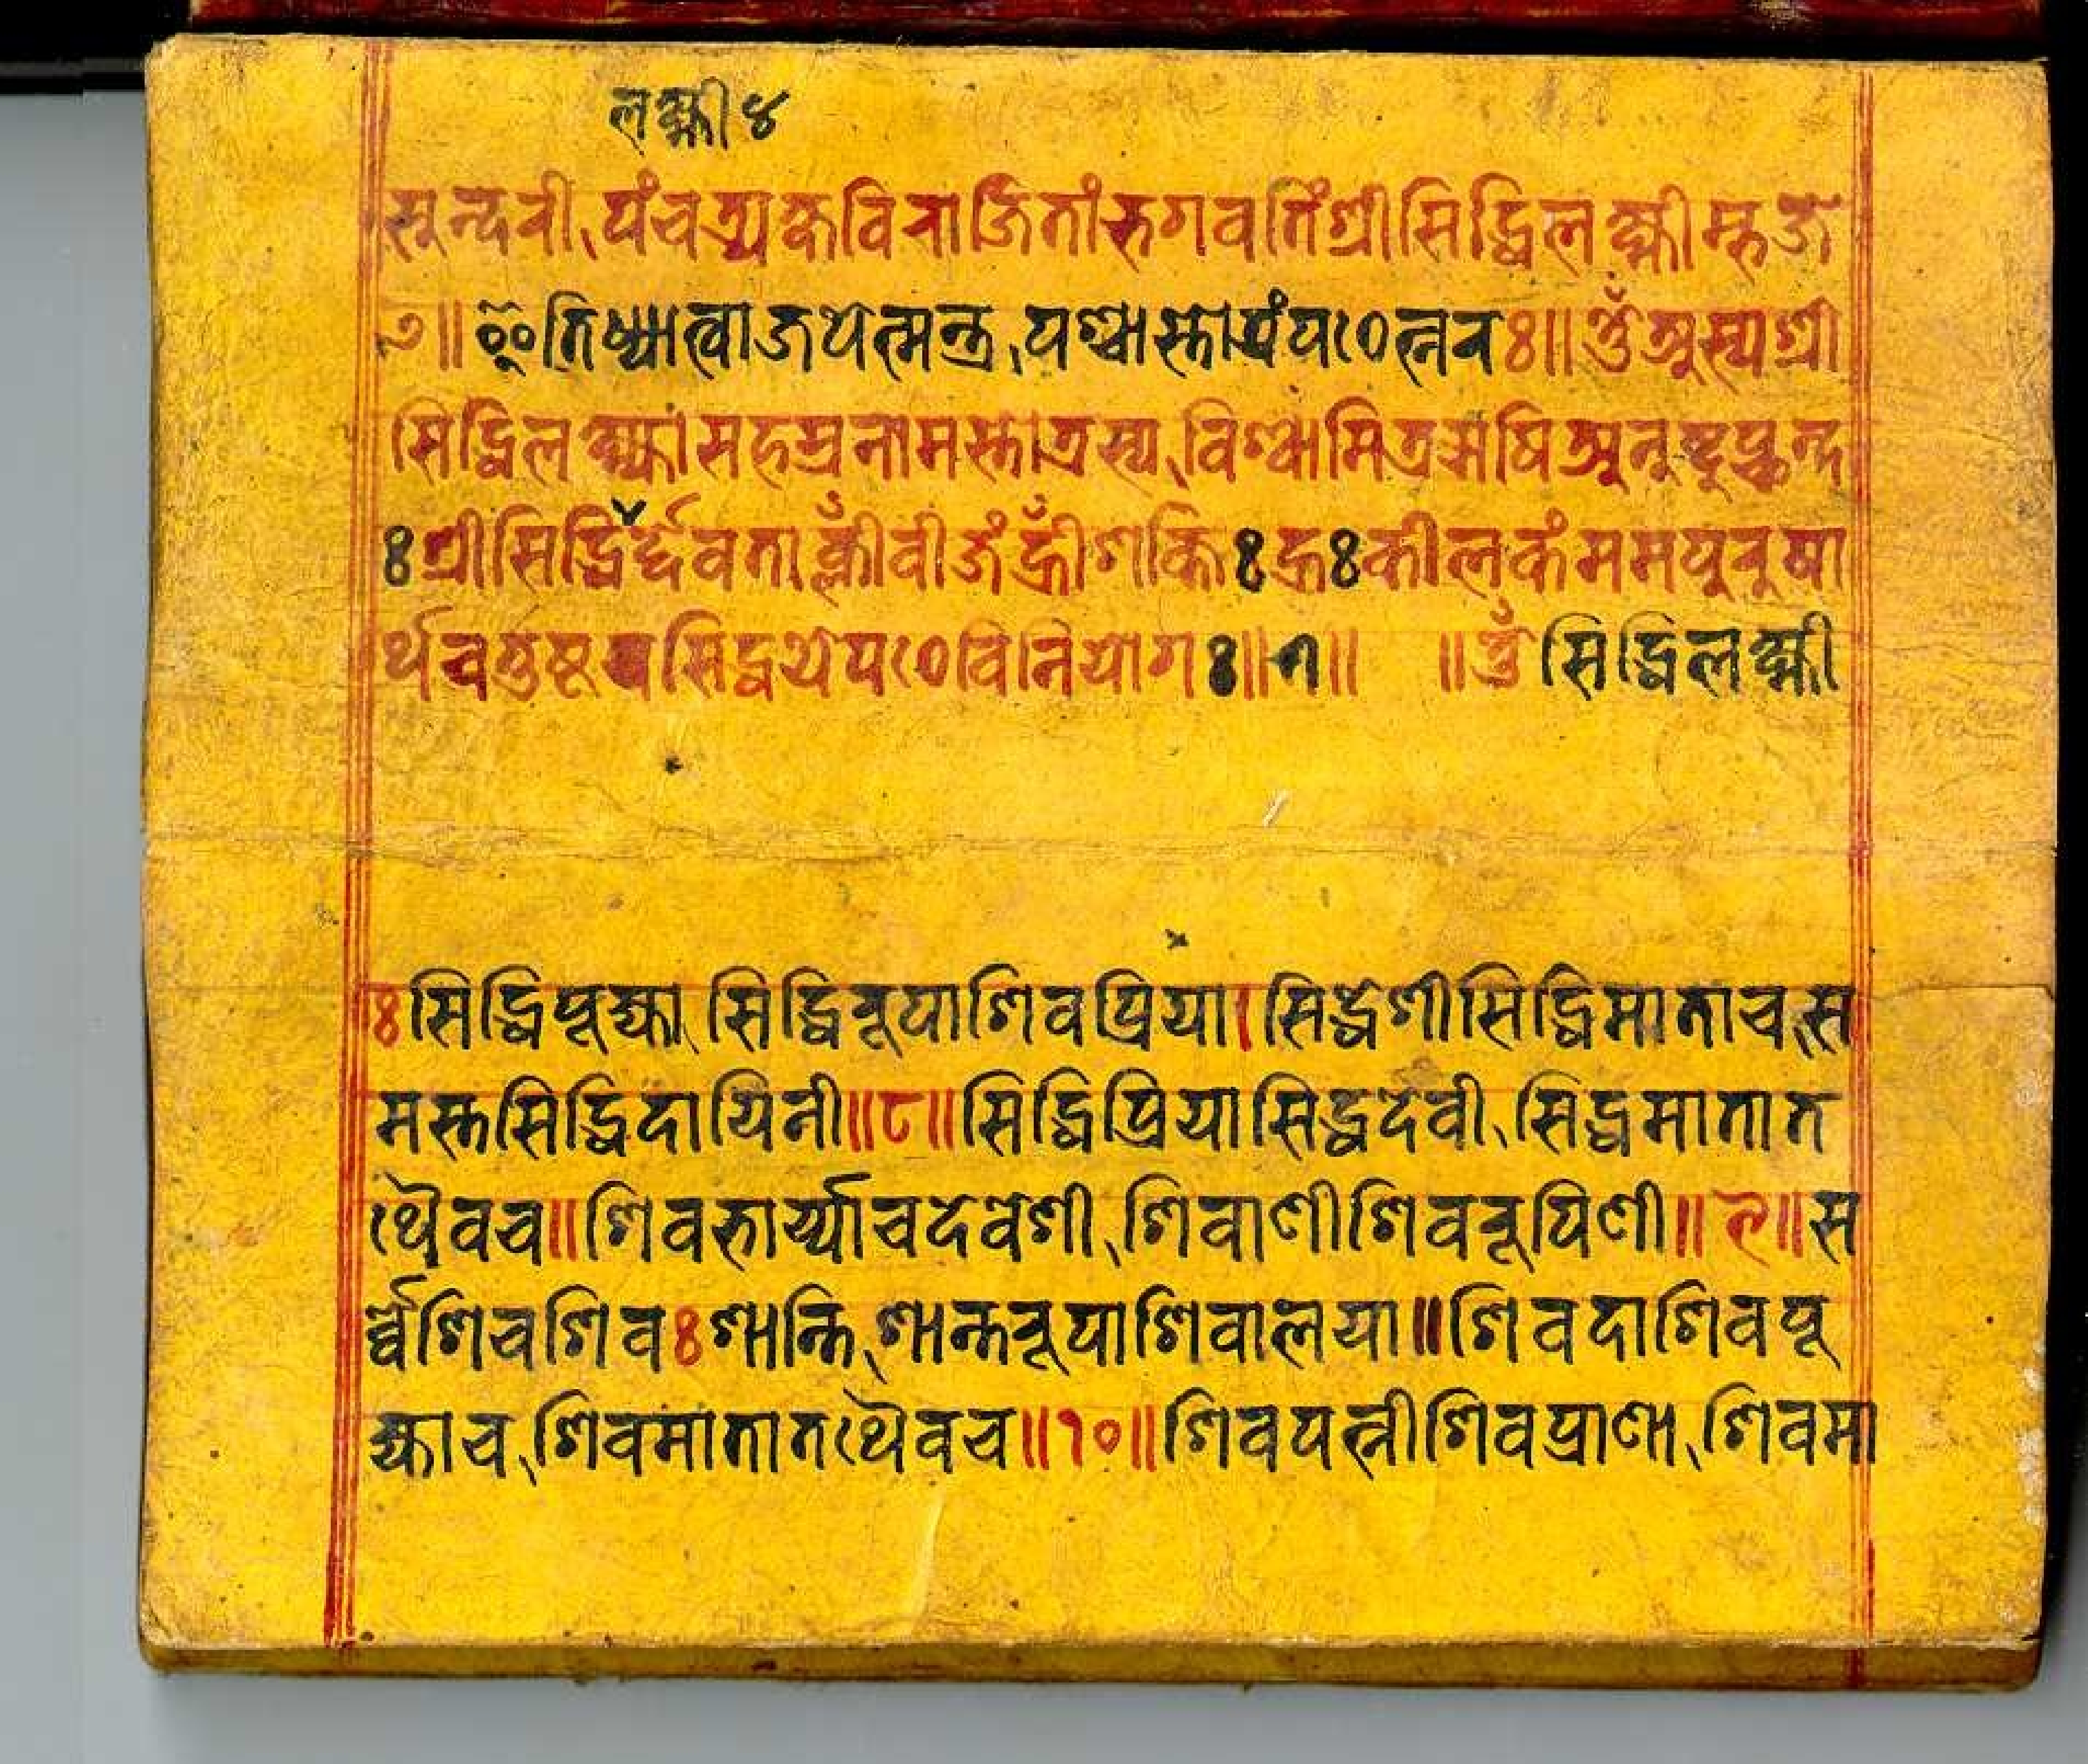 लक्ष्मी ४
सुन्दरी, पंचत्र्यक्कविराजितां भगवतिं श्रीसिद्धिलक्ष्मीम्भज
७॥ इति ध्यात्वा जपेत्मन्त्र, पश्चास्तोत्रं पठेत्नरः॥ ॐ अस्य श्री
सिद्धिलक्ष्म्या सहस्रनामस्तोत्रस्य, विश्वामित्रऋषि अनुष्टुप्छन्द
ः श्रीसिद्धिर्द्देवता क्लीँ वीजं ह्रीँ शक्तिः ह्रः कीलकं मम पुरुषा
र्थचतुष्टयसिद्ध्यर्थे पठे विनियोगः॥ ७॥ ॥ ॐ सिद्धिलक्ष्मी
ः सिद्धिपूज्या, सिद्धिरूपा शिवप्रिया। सिद्धेशी सिद्धिमाता च, स
मस्तसिद्धिदायिनी॥ ८॥ सिद्धिप्रिया सिद्धदेवी, सिद्धमाता त
थैव च॥ शिवभार्य्या च देवेशी, शिवाणी शिवरूपिणी॥ ९॥ स
र्व्वेशि च शिवः शान्ति, शान्तरूपा शिवालया॥ शिवदा शिवपू
ज्या च, शिवमाता तथैव च॥ १०॥ शिवपत्नी शिवप्राणा, शिवमा